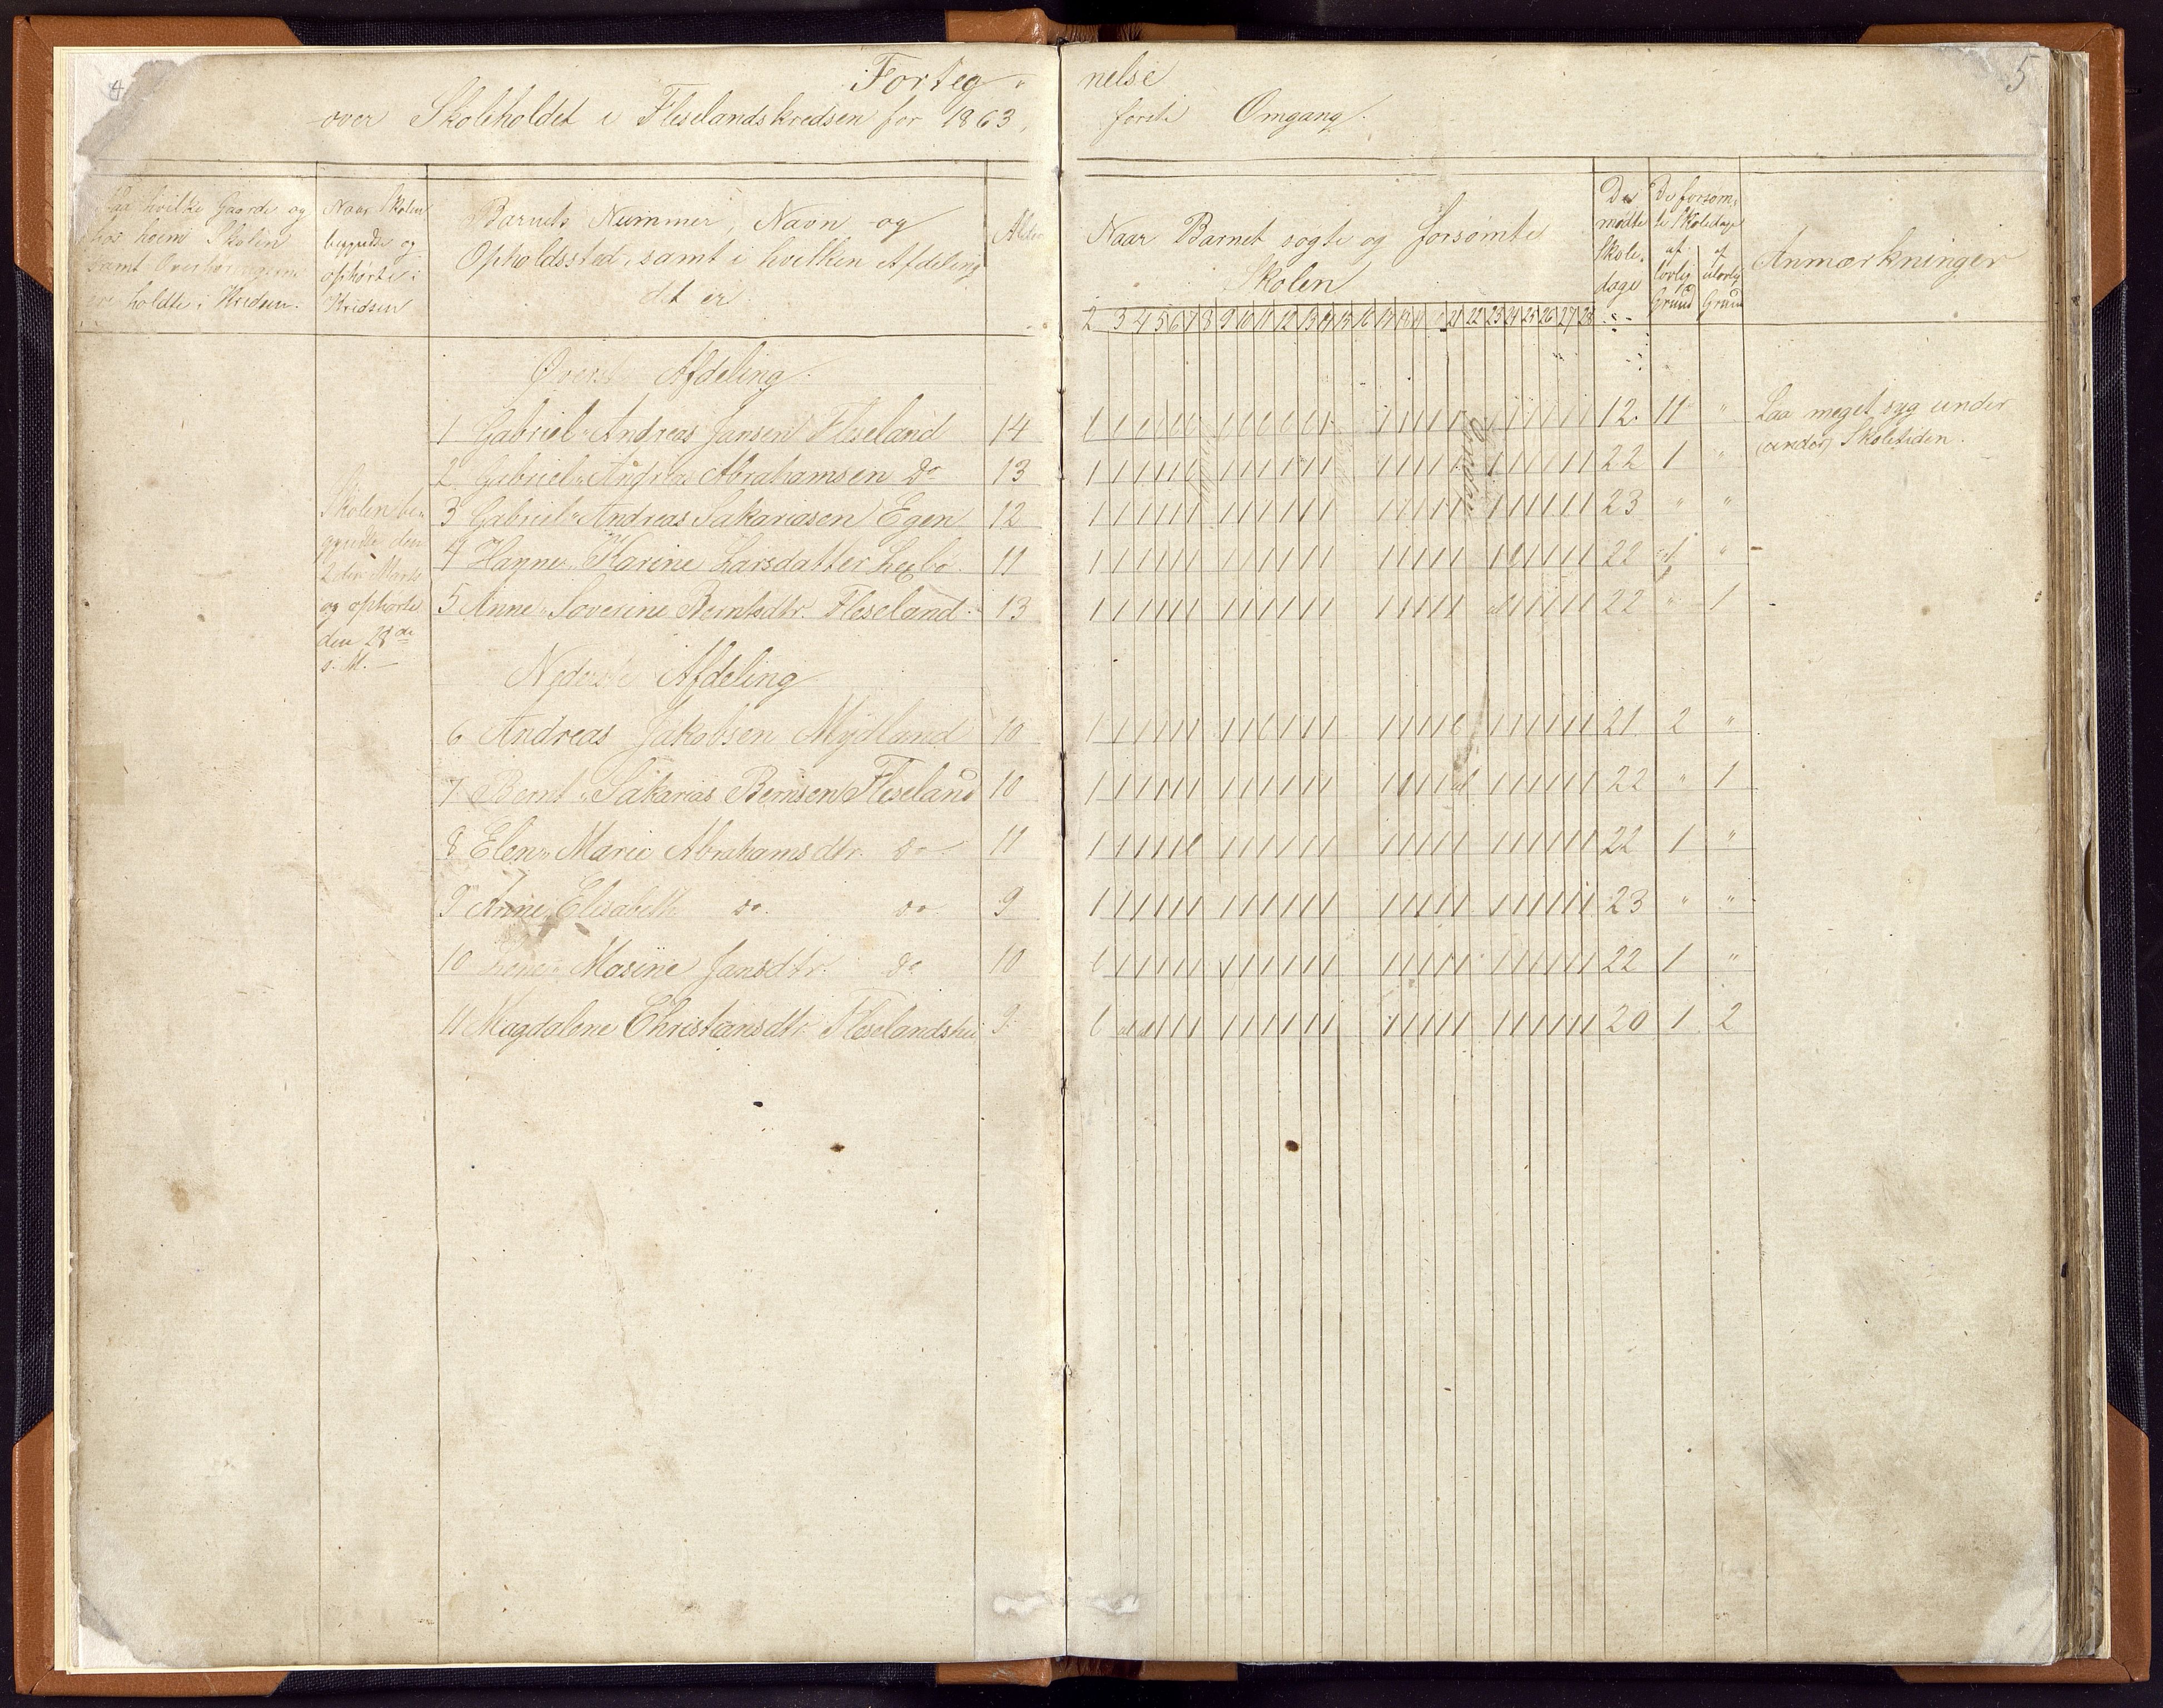 4
5
Forteg-
nelse
over Skoleholdet i Fleselandskredsen for 1863,
förste Omgang.
Paa hvilke Gaarde og
hos hvem Skolen
samt Overhøringerne
ere holdte i Kredsen.
Naar Skolen
begyndte og
ophørte i
Kredsen
Barnets Nummer, Navn og
Opholdssted, samt i hvilken Afdeling
det er
Alder
Naar Barnet søgte og forsømte
Skolen
2 3 4 5 6 7 8 9 10 11 12 13 14 15 16 17 18 19 20 21 22 23 24 25 26 27 28
De
mødte
Skole-
dage
De forsøm-
te Skoledage
af
lovlig
Grund
af
ulovlig
Grund
Anmærkninger
Øverste Afdeling
1 Gabriel Andreas Jansen Fleseland 14 12 11 "
Laa meget syg under
(under) Skoletiden.
2 Gabriel Andreas Abrahamsen do 13 22 1 "
3 Gabriel Andreas Sakariasen Egen 12 23 " "
4 Hanne Karine Larsdatter 11 22 1 "
5 Anne Soverine Berntsdtr. Fleseland 13 22 " 1
Skolen be-
gyndte den
2den Marts
og ophørte
den 28de
s. M.
Nederste Afdeling
6 Andreas Jakobsen Mydland 10 21 2 "
7 Bernt Sakarias Bernsen Fleseland 10 22 " 1
8 Elen Marie Abrahamsdtr. do 11 22 1 "
9 Anne Elisabeth do. do. 9 23 " "
10 Masine Jansdtr. do 10 22 1 "
11 Magdalene Christiansdtr. Fleselandshei 9 20 1 2